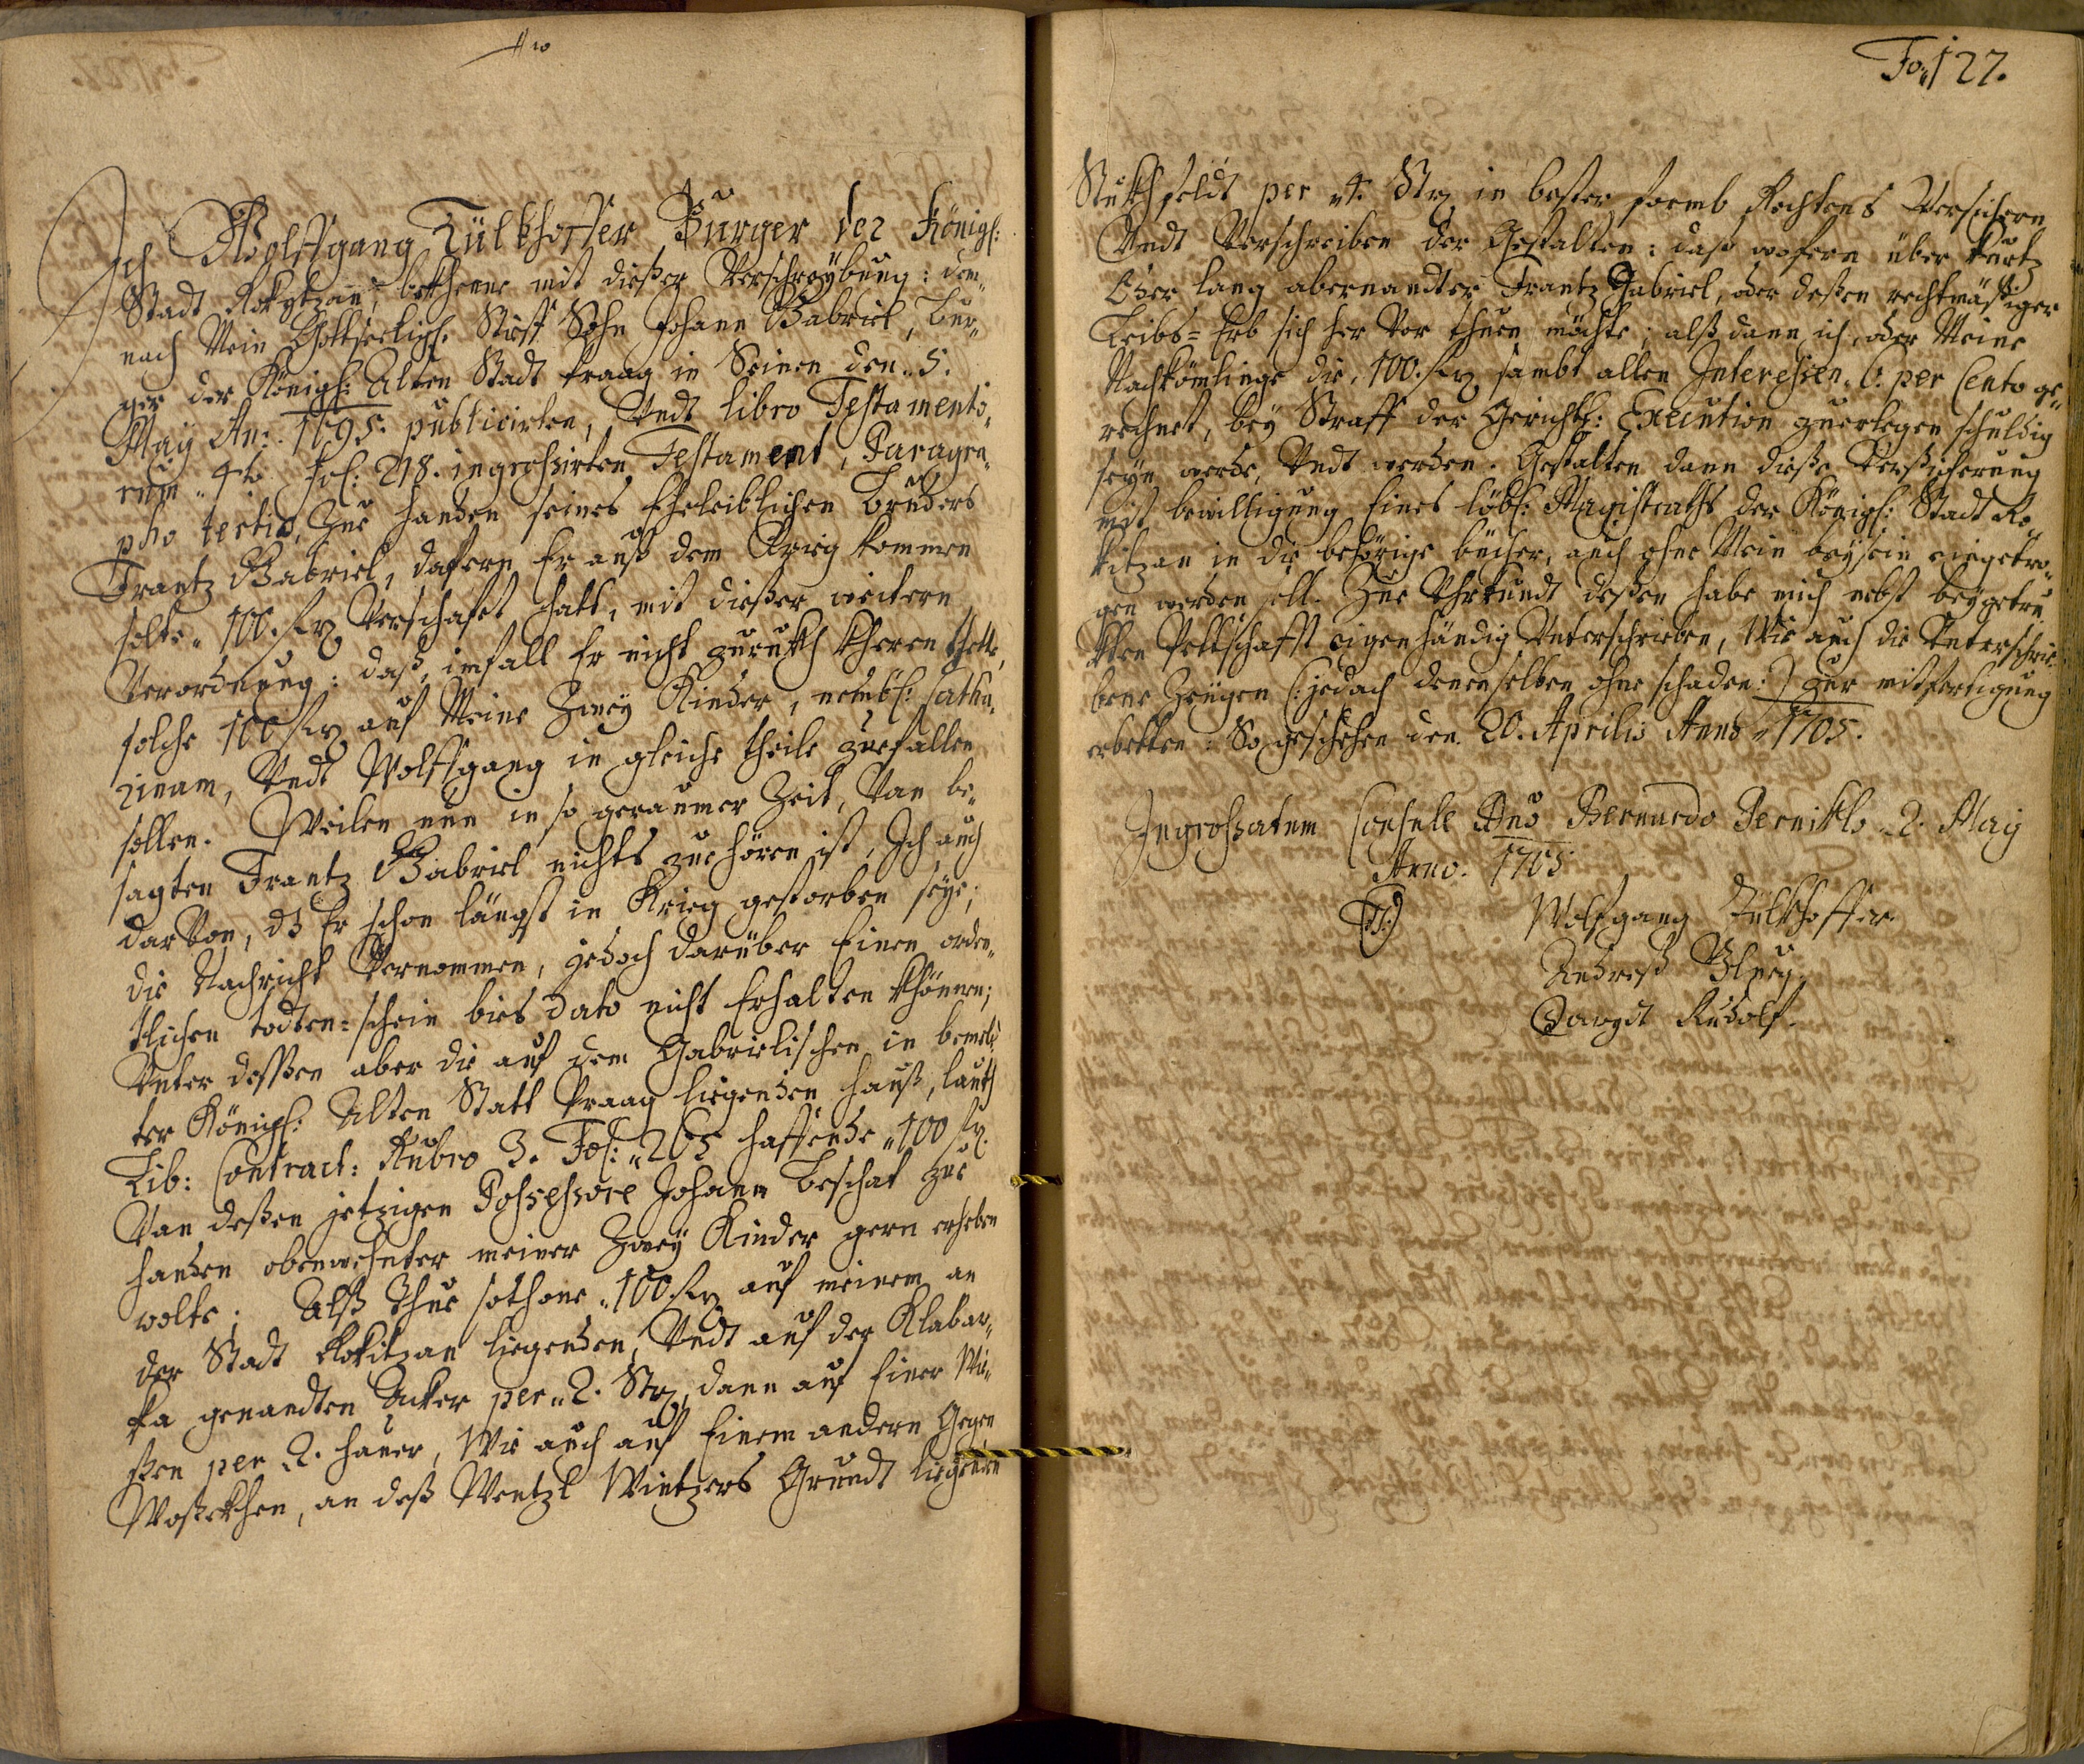 Fo: 127.
Ich Wolffgang Tülkhoffer Burger der Königl:
Stadt Rokytzan, bekhenne mit dießer Verschreybung: dem„
nach Mein Gottseeligl. Stieff Sohn Johann Gabriel, Bur„
ger der Königl: Alten Stadt Praag in Seinen den„ 5.
Maÿ An: 1695. publicirten, Vndt libro Testamento„
rum„ 4to fol: 218. ingrossirten Testament, Paragra„
pho tertio, Zue handen seines Eheleiblichen Bruders
Frantz Gabriel, dafern Er auß dem Krieg kommen
solte„ 100. fl Verschafft hatt, mit dießer weitern
Verordnung: daß, imfall Er nicht zurukh kheren thette,
solche 100 fl auf Meine Zweÿ Kinder, nembl: Catha„
rinam, Vndt Wolffgang in gleiche theile zuefallen
sollen. Weilen nun in so geraumer Zeit, Van be„
sagten Frantz Gabriel nichts zue hören ist, Ich auch
darVon, dß Er schon längst in Krieg gestorben seÿe;
die Nachricht Vernommen, jedoch darüber Einen orden„
tlichen todten=schein bies dato nicht Erhalten khönnen;
Vnter deßßen aber die auf dem Gabrielischen in bemel„
ter Königl: Alten Statt Praag liegenden hauß, lauth
Lib: Contract: Rubro 3. Fol:„ 265 hafftende„ 100 fl.
Van deßen jetzigen Possessore Johann Beschak zue
handen obenwehnter meiner Zweÿ Kinder gern erheben
wolte; Alß Thue sothane„ 100 fl auf meinem an
der Stadt Rokitzan liegenden, Vndt auf der Klabaw„
ka genandten Acker per„ 2. Str, dann auf Einer Wie„
ßen per„ 2. hauer, Wie auch auf Einem andern Gegen
Woßekhen, an deß Wentzl Wintzers Grundt liegenden
Stukh feldt per„ 4. Str in bester formb Rechtens Versichern
Vndt Verschreiben der Gestalten: daß wofern über kurtz
Oder lang abernandter Frantz Gabriel, oder deßen rechtmäßiger
Leibs=Erb sich her Vor thuen möchte; alß dann ich, oder Meine
Nachkömlinge die„ 100. fl sambt allen Interessen„ 6. per Cento ge„
rechnet, beÿ Straff der Gerichtl: Execution zuerlegen schuldig
seÿn werde, Vndt werden. Gestalten dann dieße Verßicherung
mit bewilligung Eines löbl: Magistraths der Königl: Stadt Ro„
kitzan in die behörige bücher, auch ohne Mein beÿsein eingetra„
gen werden soll. Zue Vhrkundt deßen habe mich nebst beÿgetru„
kten Pettschafft eigenhändig Vnterschrieben, Wie auch die Vnterschrie„
bene Zeügen (: jedoch denenselben ohne schaden :) zur mitfertigung
erbetten: So geschehen den 20. Aprilis Anno„ 1705.
Ingrossatum Consule Dno Bernardo Perniklo„ 2. Maij
Anno. 1705
Wolfgang Tülkhoffer.
Andreß
Rudolf.